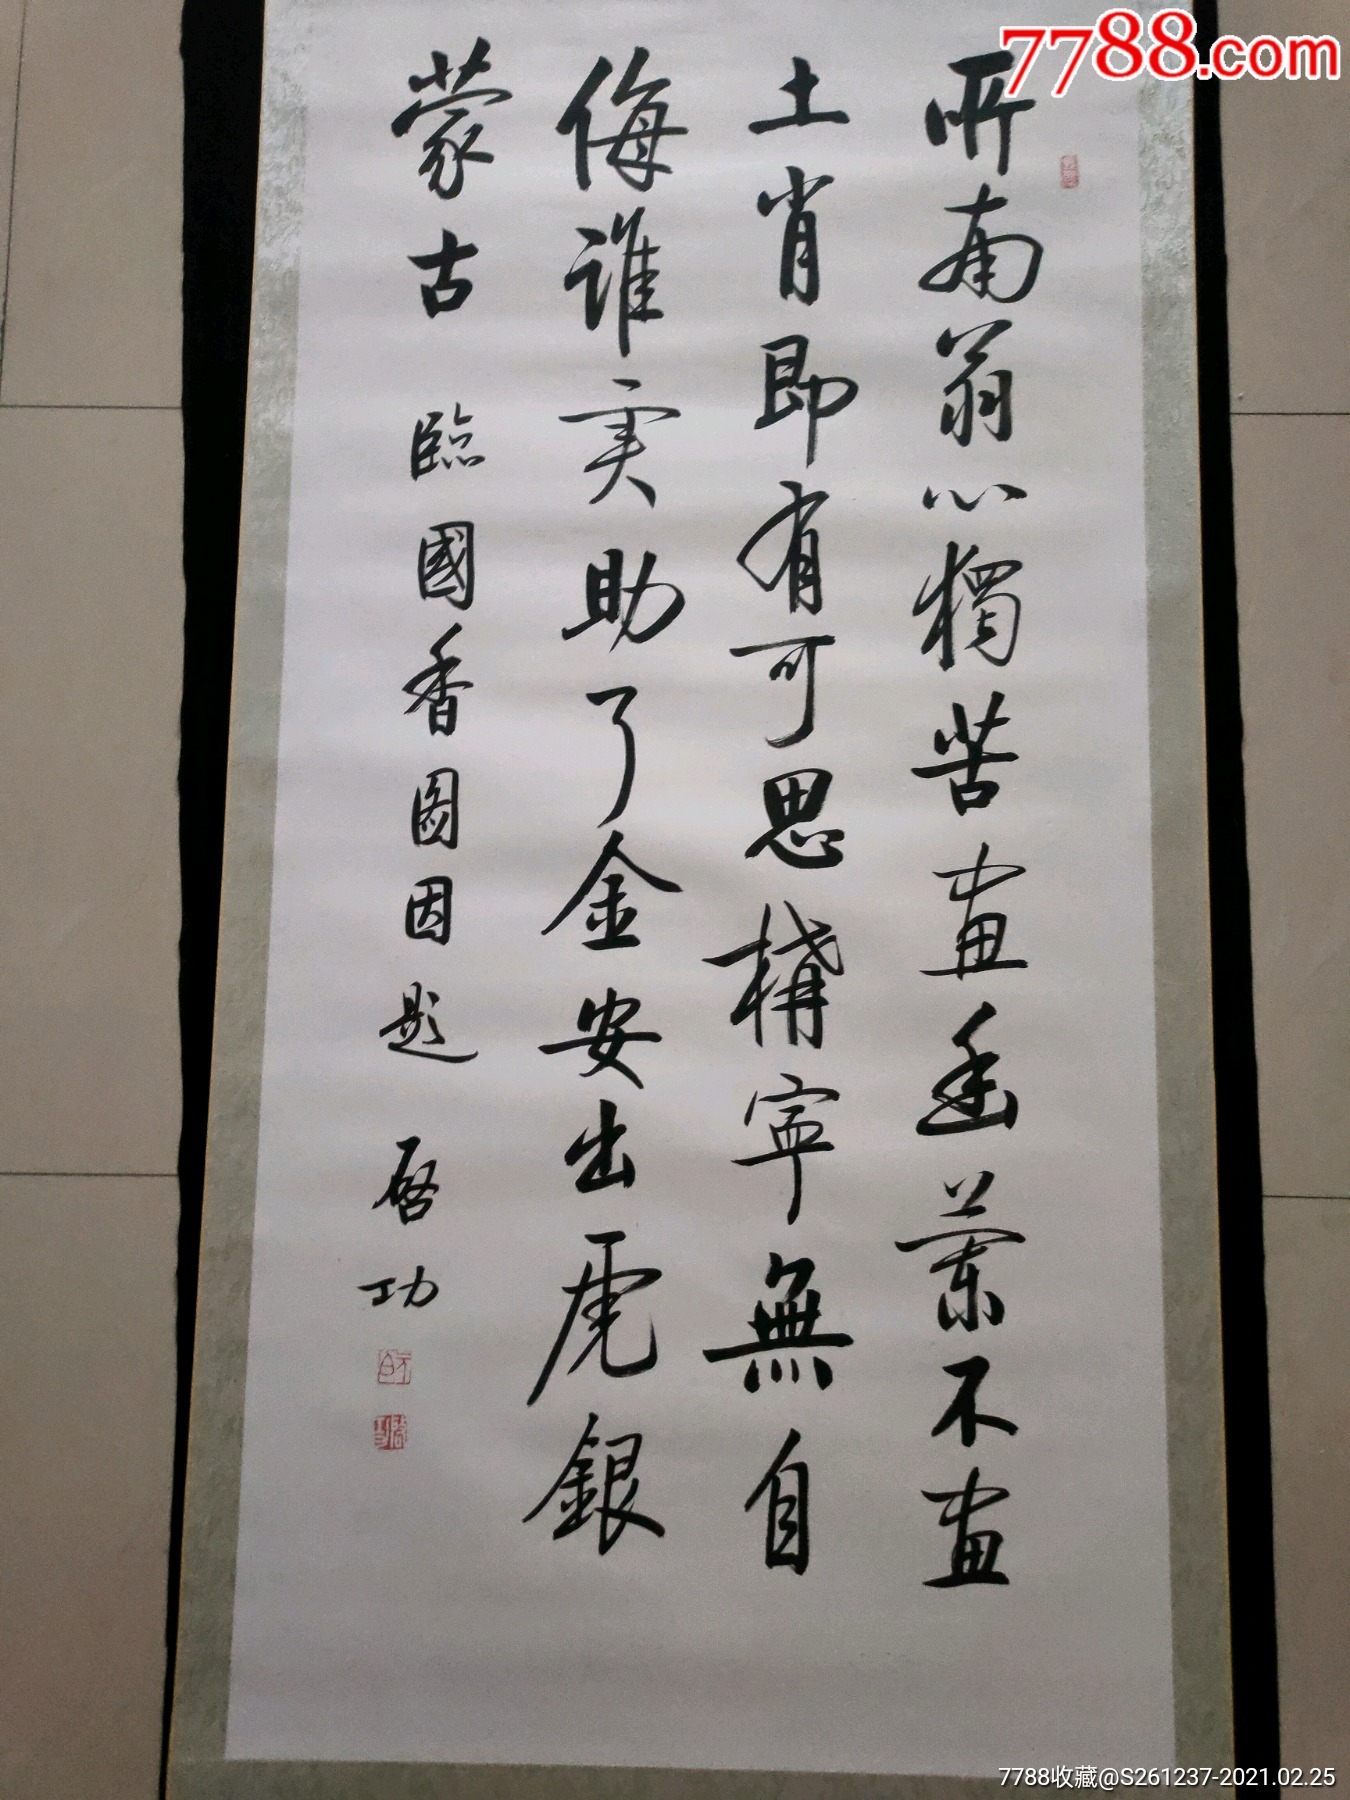 7788.com
所南翁心獨苦畫垂蘭不畫
土肖即有可思構寧無自
侮誰实助了金安出虎銀
蒙古 臨國香圖因題 啓功
7788收藏@S261237-2021.02.25